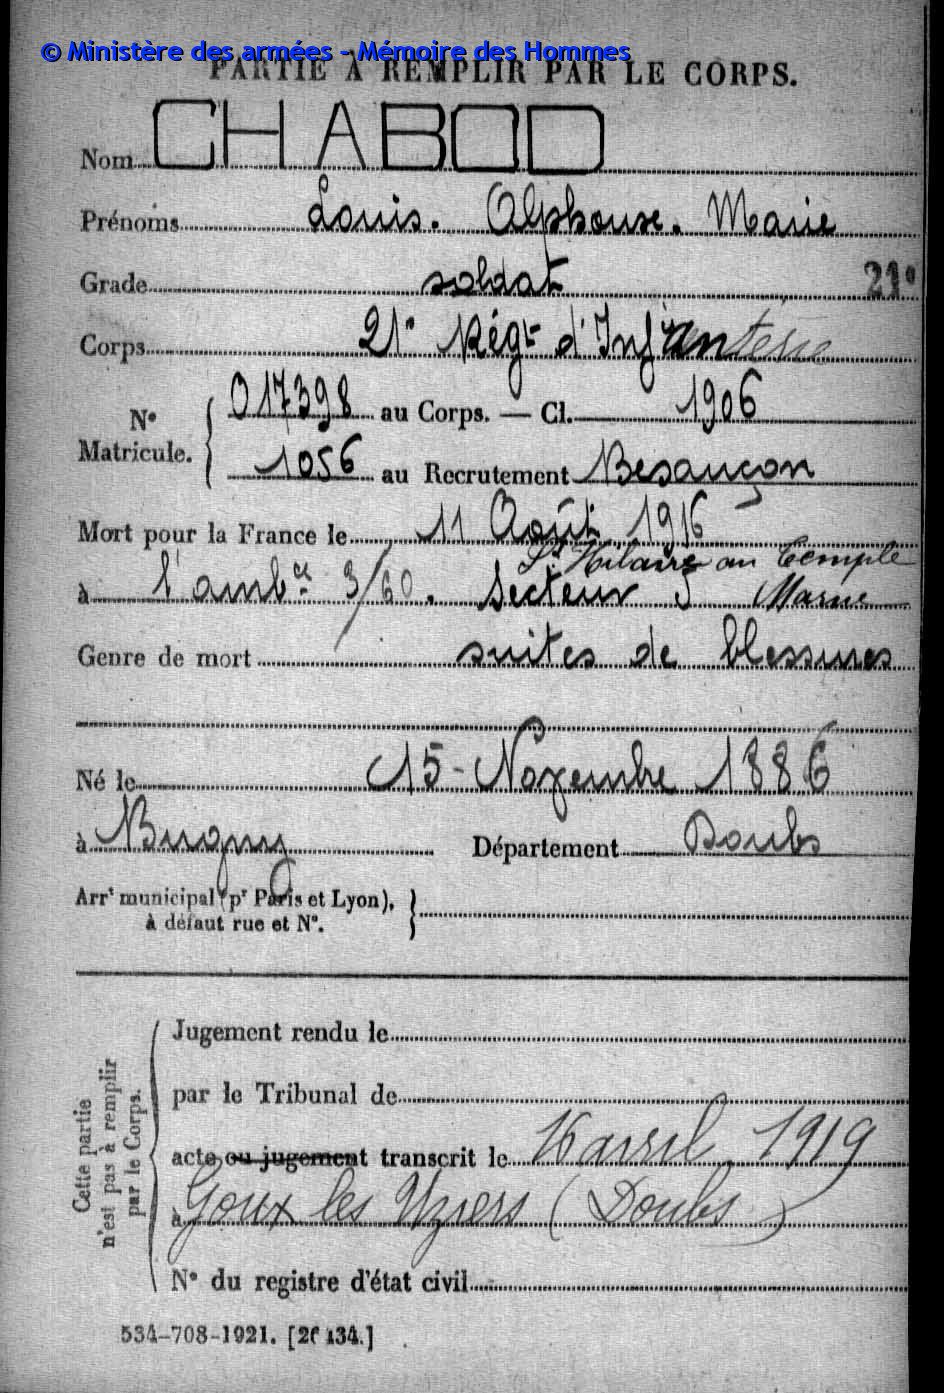 © Ministère des armées - Mémoire des Hommes
PARTIE À REMPLIR PAR LE CORPS.
Nom CHABOD
Prénoms Louis. Alphonse. Marie
Grade soldat 21e
Corps 21e Régt d'Infanterie
No Matricule. 017398 au Corps. — Cl. 1906
1056 au Recrutement Besançon
Mort pour la France le 11 Août 1916
St Hilaire au Temple
à l'ambce 3/60. Secteur 5 Marne
Genre de mort suites de blessures
Né le 15 Novembre 1886
à Bugny Département Doubs
Arrt municipal (pr Paris et Lyon),
à défaut rue et No.
Cette partie
n'est pas à remplir
par le Corps.
Jugement rendu le
par le Tribunal de
acte ou jugement transcrit le 16 avril 1919
à Goux les Usiers (Doubs)
No du registre d'état civil
534-708-1921. [26434.]